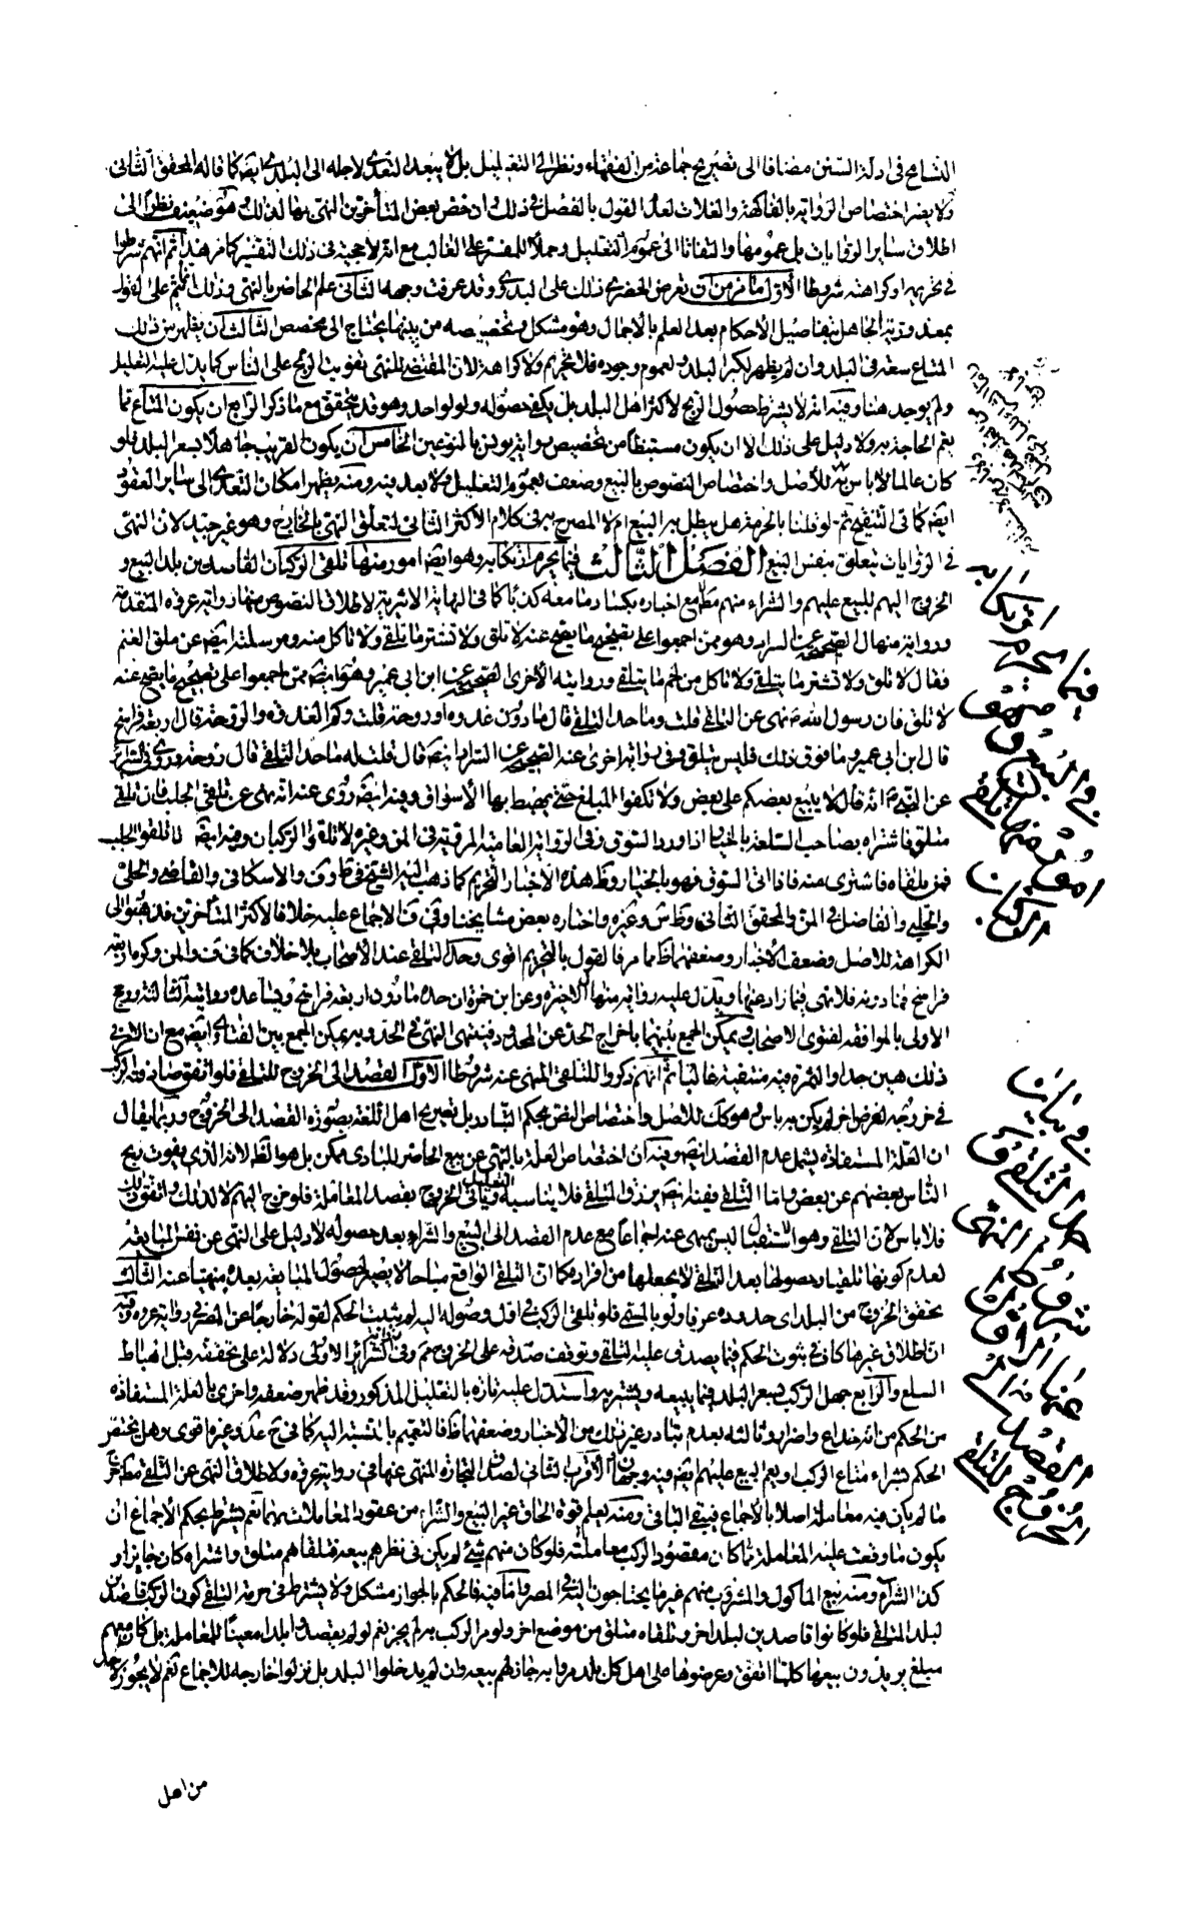 التسامح في ادلة السنن مضافا الى تصريح جماعة من الفقهاء ونظرا الى التعليل بل لا يبعد التعدى لاجله الى البلدى ايضا كما قاله المحقق الثانى
ولا يضر اختصاص الرواية بالفاكهة والغلات لعدم القول بالفصل في ذلك وخص بعض المتأخرين النهى بها لذلك وهو ضعيف نظرا الى
اطلاق ساير الروايات بل عمومها والتفاتا الى عموم التعليل وحملا للمفسر على الغالب مع انه لا حجية في ذلك التفسير كما مر هذا ثم انهم شرطوا
في تحريمه او كراهته شروطا الاول ما مر من ان يعرض الحضرى ذلك على البدوى وقد عرفت وجهه الثانى علم الحاضر بالنهى وذلك
بمعذورية الجاهل بتفاصيل الاحكام بعد العلم بالاجمال وهو مشكل وتخصيصه من بينها يحتاج الى مخصص الثالث ان يظهر من ذلك
المتاع سعة في البلد وان لم يظهر لكبر البلد وعموم وجوده فلا تحريم ولا كراهة لان المقتضى للنهى تفويت الربح على الناس كما يدل عليه التعليل
ولم يوجد هنا وفيه انه لا يشترط حصول الربح لاكثر اهل البلد بل يكفى حصوله ولو لواحد وهو قد يتحقق مع ما ذكر الرابع ان يكون المتاع مما
يعم الحاجة به ولا دليل على ذلك الا ان يكون مستنبطا من تخصيص رواية يونس بالنوعين الخامس ان يكون الغريب جاهلا بسعر البلد فلو
كان عالما لا باس به للاصل واختصاص النصوص بالبيع وضعف بعموم التعليل ولا بعد فيه ومنه يظهر امكان التعدى الى ساير العقود
ايضا كما في التنقيح ثم لو قلنا بالحرمة هل يبطل به البيع ام لا المصرح به في كلام الاكثر الثانى لتعلق النهى بالخارج وهو غير جيد لان النهى
في الروايات يتعلق بنفس البيع الفصل الثالث فيما يحرم ارتكابه وهو ايضا امور منها تلقى الركبان القاصدين بلد البيع و
الخروج اليهم للبيع عليهم والشراء منهم مع اخباره بكساد ما معه كذبا كما في النهاية الاثيرية لاطلاق النصوص منها رواية عروة المتقدمة
ورواية منهال الصحيحة عن السراد وهو ممن اجمعوا على تصحيح ما يصح عنه لا تلق ولا تشتر ما يتلقى ولا تاكل منه ومرسلته ايضا عن تلقى الغنم
فقال لا تلق ولا تشتر ما يتلقى ولا تاكل من لحم ما يتلقى وروايته الاخرى الصحيحة عن ابن ابى عمير وهو ايضا ممن اجمعوا على تصحيح ما يصح عنه
لا تلق فان رسول الله ص نهى عن التلقى قلت وما حد التلقى قال ما دون غدوة او روحة قلت وكم الغدوة والروحة قال اربعة فراسخ
قال ابن ابى عمير وما فوق ذلك فليس بتلق وفي رواية اخرى عنه الصحيحة عن السراد ايضا قال قلت له ما حد التلقى قال روحة وروى في
عن النبي ص انه قال لا يبيع بعضكم على بعض ولا تلقوا المبلغ حتى يهبط بها الاسواق وفيه ايضا روى عنه انه نهى عن تلقى الجلب فان تلقى
متلق فاشتراه فصاحب السلعة بالخيار اذا ورد السوق وفي الرواية العامية المروية في وغيره لا تلقوا الركبان وفيه ايضا لا تلقوا الجلب
فمن تلقاه فاشترى منه فاذا اتى السوق فهو بالخيار وظ هذه الاخبار التحريم كما ذهب اليه الشيخ في ط وف والاسكافى والقاضى والحلى
والحلبى والفاضل في والمحقق الثانى وظاهر س وغيره واختاره بعض مشايخنا وفي ف الاجماع عليه خلافا لاكثر المتأخرين فذهبوا الى
الكراهة للاصل وضعف الاخبار وضعفهما ظ مما مر فالقول بالتحريم اقوى وحد التلقى عند الاصحاب بلا خلاف كما في ف وكره اربعة
فراسخ فما دونه فلا نهى فيما زاد عنها ويدل عليه رواية منهال الاخيرة وعن ابن حمزة ان حده ما دون اربعة فراسخ وتساعده روايته الثالثة ورجح
الاولى بالموافقة لفتوى الاصحاب ويمكن الجمع بينهما باخراج الحد عن المحدود فينتهى النهى في الحد وبه يمكن الجمع بين الفتاوى ايضا مع ان الامر في
ذلك هين جدا والثمرة فيه منتفية غالبا ثم انهم ذكروا للتلقى المنهى عنه شروطا الاول القصد الى الخروج للتلقى فلو اتفق مصادفة الركب
في خروجه لغرض اخر لم يكن به باس وهو كذلك للاصل واختصاص النص بحكم التبادر بل تصريح اهل اللغة بصورة القصد الى الخروج وربما يقال
ان العلة المستفادة يشمل عدم القصد ايضا وفيه ان اختصاص العلة بالنهى عن بيع الحاضر للبادى ممكن بل هو الظ لانه الذى يفوت ربح
الناس بعضهم عن بعض واما التلقى ففيه التعليل الخروج بقصد المعاملة فلو خرج اليهم لا لذلك واتفق ذلك
فلا باس لان التلقى وهو الاستقبال ليس بمنهى عنه اجماعا مع عدم القصد الى البيع والشراء وبعد حصوله لا دليل على النهى عن نفس المبايعة
لعدم كونها تلقيا وحصولها بعد التلقى لا يجعلها من افراده كما ان التلقى الواقع مباحا لا يصير بحصول المبايعة بعده منهيا عنه الثالث
تحقق الخروج من البلد اى حدوده عرفا ولو بالمشى فلو تلقى الركب في اول وصوله اليه لم يثبت الحكم لقوله خارجا عن المصر في رواية عروة وفيه
ان اطلاق غيرها كاف في ثبوت الحكم فيما يصدق عليه التلقى وتوقف صدقه على الخروج مم وفي اكثر الاولى دلالة على تحققه قبل اهباط
السلع والرابع جهل الركب بسعر البلد فيما يبيعه ويشتريه واستدل عليه تارة بالتعليل المذكور وقد ظهر ضعفه واخرى بالعلة المستفادة
من الحكم من انه خداع واضرار وثالثة بعدم تبادر غير ذلك من الاخبار وضعفهما ظ فالتعميم بالنسبة اليه كما في وغيره اقوى وهل يختص
الحكم بشراء متاع الركب او يعم البيع عليهم ايضا فيه وجهان الاقرب الثانى لصدق التجارة المنهى عنها في رواية عروة ولاطلاق النهى عن التلقى مط خرج
ما لم يكن فيه معاملة اصلا بالاجماع فيبقى الباقى ومنه يعلم قوة الحاق غير البيع والشراء من عقود المعاملات بهما نعم يشترط بحكم الاجماع ان
يكون ما وقعت عليه المعاملة مما كان مقصود الركب معاملته فلو كان منهم شئ لم يكن في نظرهم بيعه فتلقاهم متلق واشتراه كان جايزا و
كذا الشراء ومنه بيع الماكول والمشروب منهم غير ما يحتاجون اليه في المصر واما فيه فالحكم بالجواز مشكل ولا يشترط في حرمة التلقى كون الركب قاصدين
لبلد المتلقى فلو كانوا قاصدين لبلد اخر وتلقاه متلق من موضع اخر ولو مر الركب به لم يجز نعم لو لم يقصدوا بلدا معينا للمعاملة بل كان معهم
مبلغ يريدون بيعها كلما اتفق وعرضوها على اهل كل بلد مروا به جاز لهم بيعه وان لم يدخلوا البلد بل نزلوا خارجه للاجماع نعم لا يجوز لاحد
من اهل
فيما يحرم ارتكابه
في البيع وهو
امور منها تلقى
الركبان
في بيان
حد التلقى و
شروط المنهى
عنها الاول
القصد الى
الخروج للتلقى